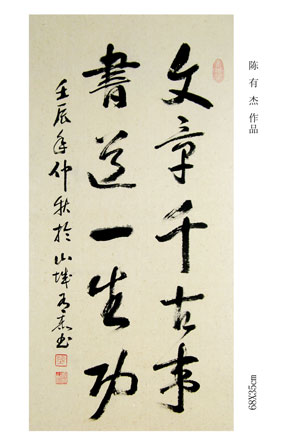 文章千古事
書道一生功
壬辰年仲秋於山城有杰书
陈有杰作品
68X35cm